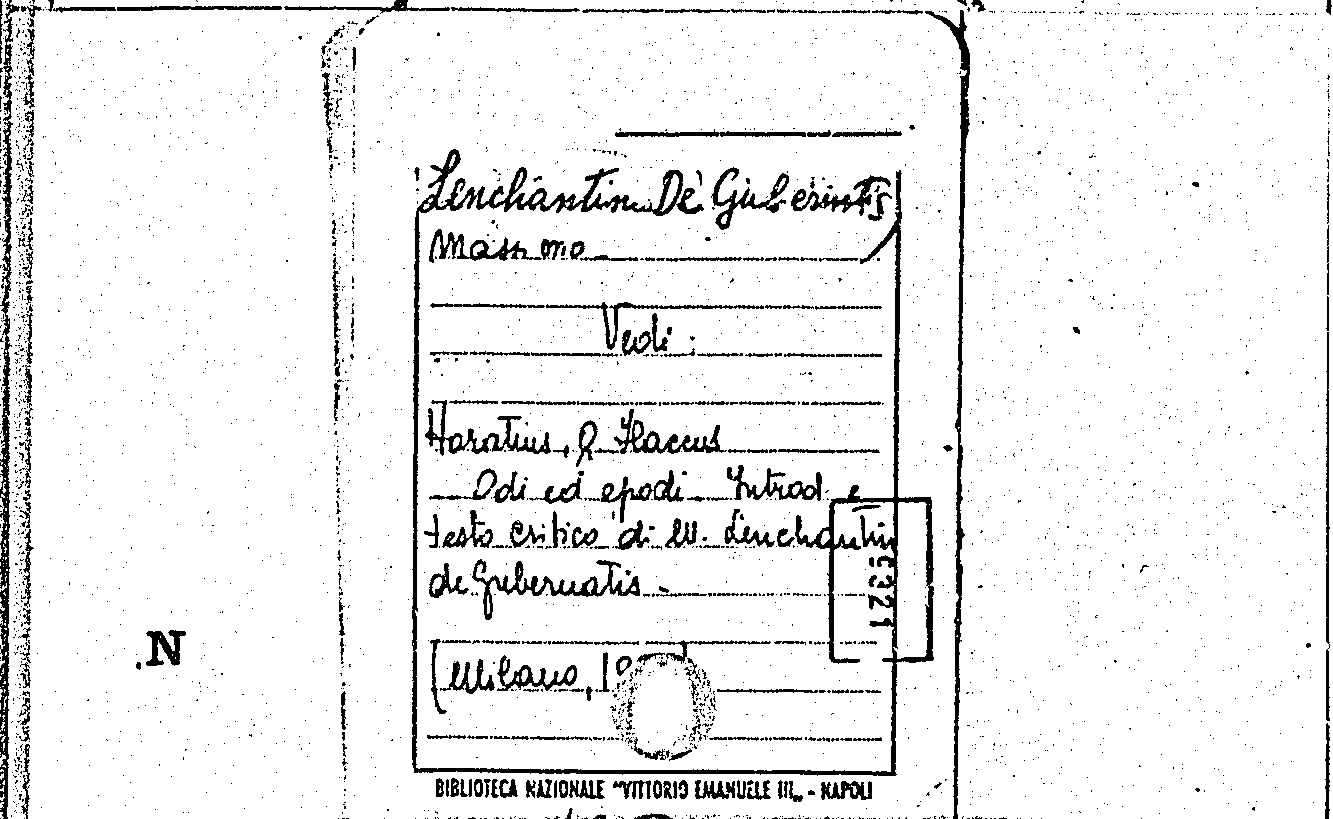 Lenchantin De Gubernatis
Massimo
Vedi:
Horatius, Q Flaccus
Odi ed epodi - Introd e
testo critico di M. Lenchantin
de Gubernatis -
(Milano,
95321
N
BIBLIOTECA NAZIONALE "VITTORIO EMANUELE III" - NAPOLI